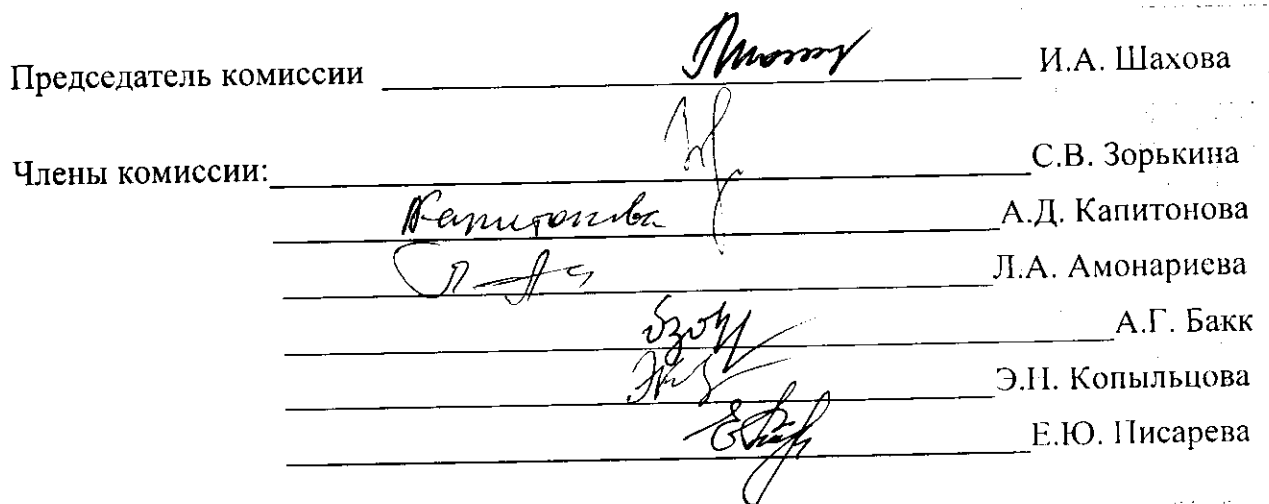 Председатель комиссии И.А. Шахова
Члены комиссии: С.В. Зорькина
Капитонова А.Д. Капитонова
Л.А. Амонариева
А.Г. Бакк
Э.Н. Копыльцова
Е.Ю. Писарева